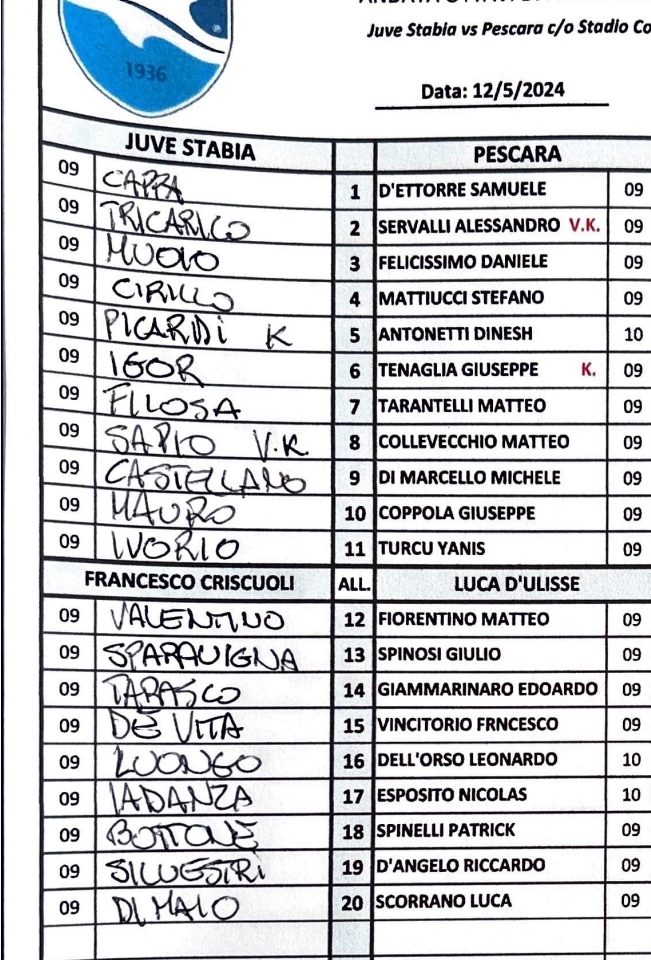 1936
Juve Stabia vs Pescara c/o Stadio Co
Data: 12/5/2024
JUVE STABIA PESCARA
09 CAPPA 1 D'ETTORRE SAMUELE 09
09 TRICARICO 2 SERVALLI ALESSANDRO V.K. 09
09 MUOIO 3 FELICISSIMO DANIELE 09
09 CIRILLO 4 MATTIUCCI STEFANO 09
09 PICARDI K 5 ANTONETTI DINESH 10
09 IGOR 6 TENAGLIA GIUSEPPE K. 09
09 FILOSA 7 TARANTELLI MATTEO 09
09 SAPIO V.K. 8 COLLEVECCHIO MATTEO 09
09 CASTELLANO 9 DI MARCELLO MICHELE 09
09 MAURO 10 COPPOLA GIUSEPPE 09
09 IVORIO 11 TURCU YANIS 09
FRANCESCO CRISCUOLI ALL. LUCA D'ULISSE
09 VALENTINO 12 FIORENTINO MATTEO 09
09 SPARAVIGNA 13 SPINOSI GIULIO 09
09 TARASCO 14 GIAMMARINARO EDOARDO 09
09 DE VITA 15 VINCITORIO FRNCESCO 09
09 LUONGO 16 DELL'ORSO LEONARDO 10
09 IADANZA 17 ESPOSITO NICOLAS 10
09 BOTTONE 18 SPINELLI PATRICK 09
09 SILVESTRI 19 D'ANGELO RICCARDO 09
09 DI MAIO 20 SCORRANO LUCA 09